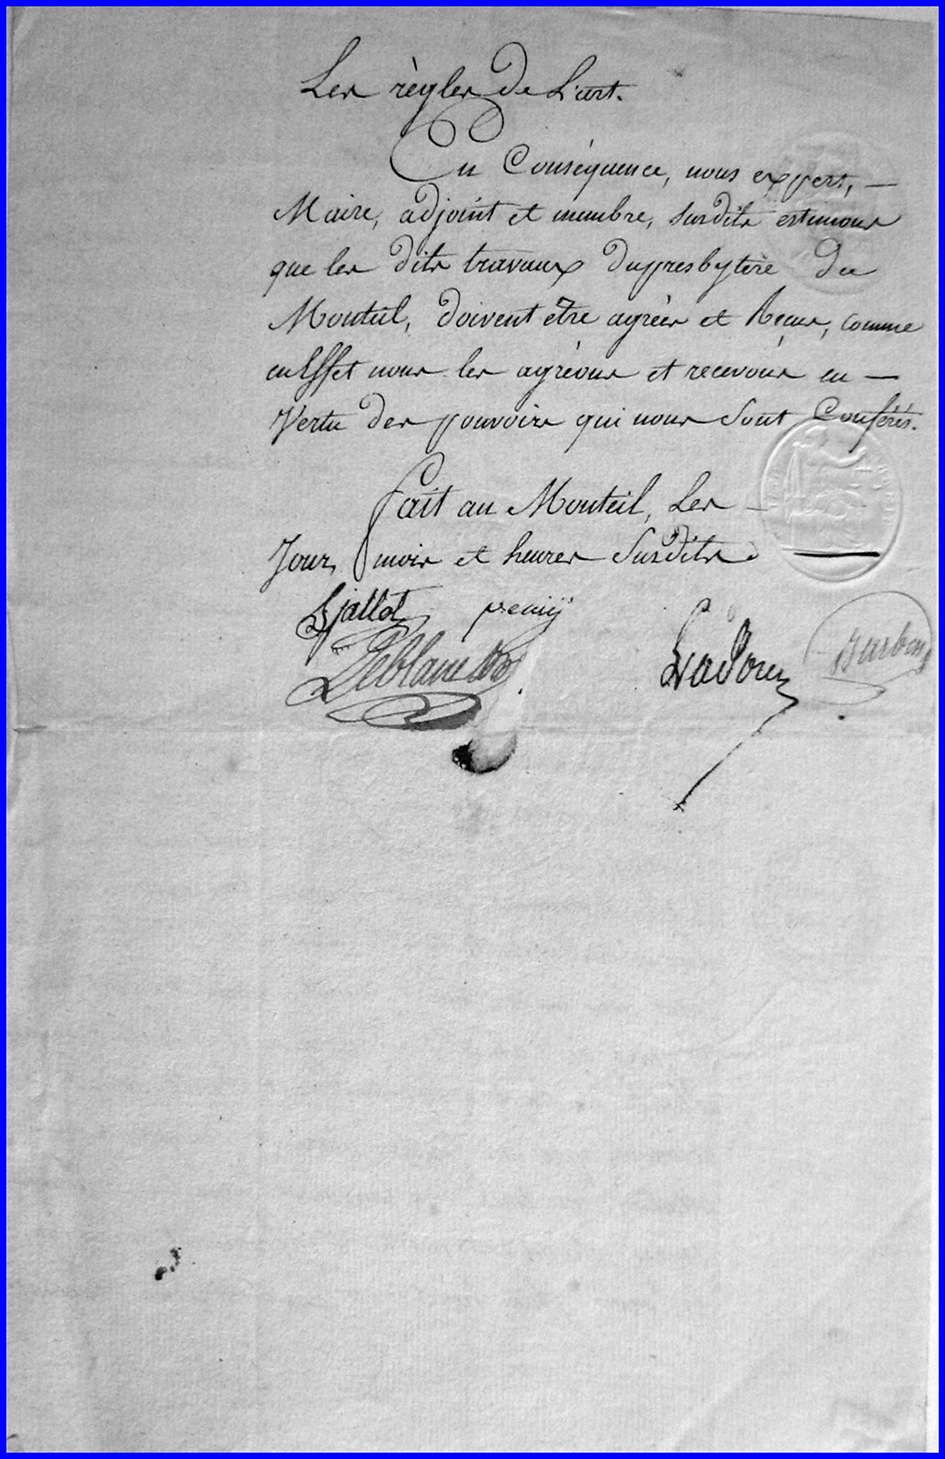 Les règles de L'art.
En Conséquence, nous expert, —
Maire, adjoint et membre, susdits estimons
que les dits travaux du presbytère du
Monteil, doivent être agréés et Reçus, comme
en Effet nous les agréons et recevons en —
Vertu des pouvoirs qui nous sont Conférés.
Fait au Monteil, Les —
Jour, mois et heures Susdits.
Jallot